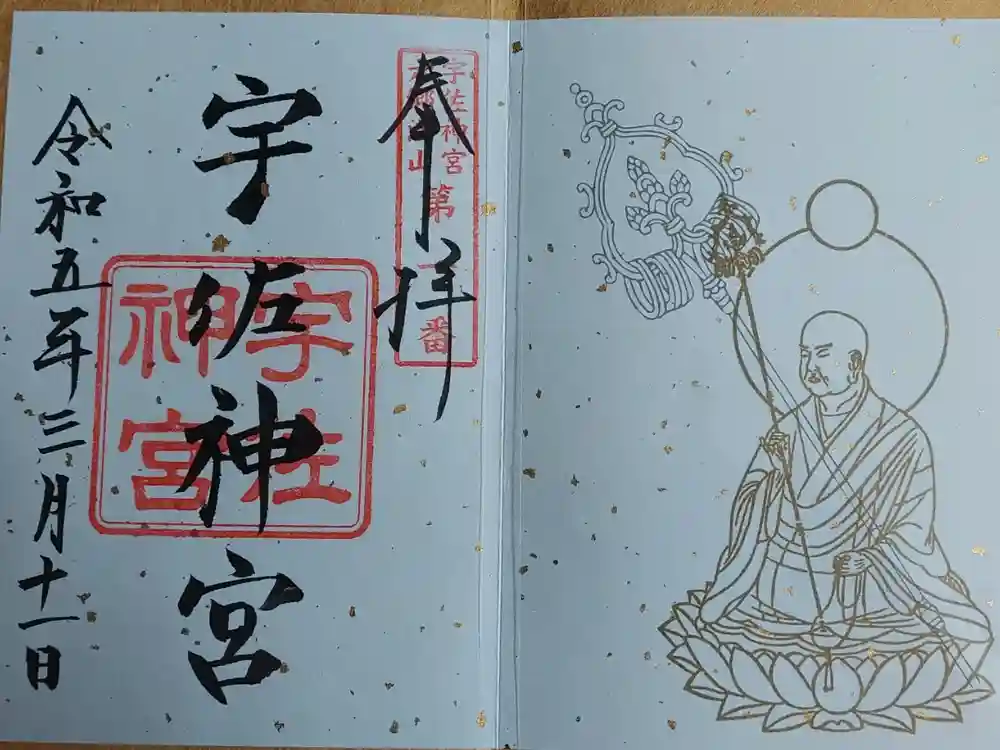 奉拝
宇佐神宮
六郷満山
第一番
宇佐神宮
宇佐
神宮
令和五年三月十一日